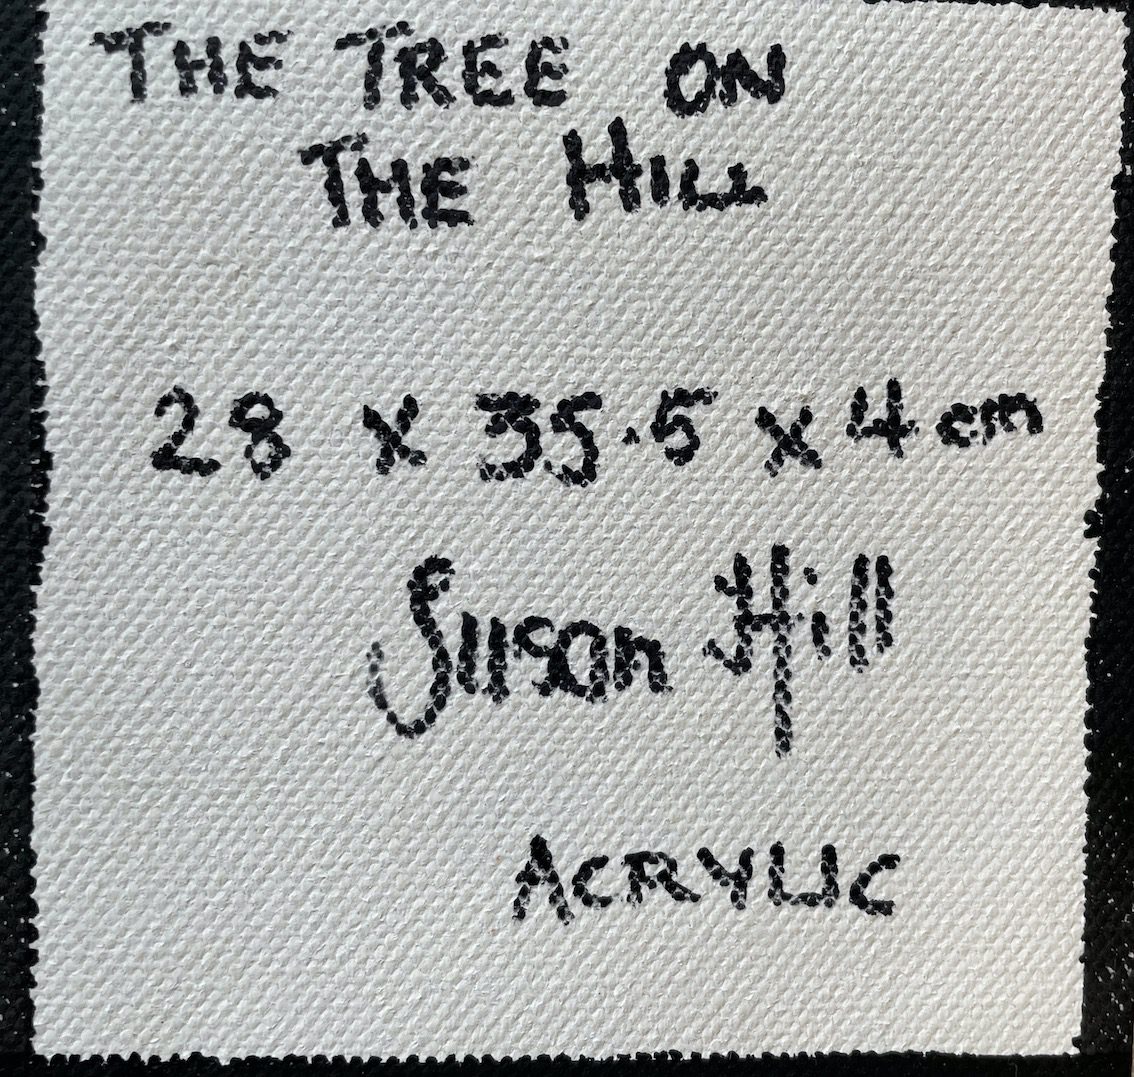 THE TREE ON
THE HILL
28 x 35.5 x 4 cm
Susan Hill
ACRYLIC